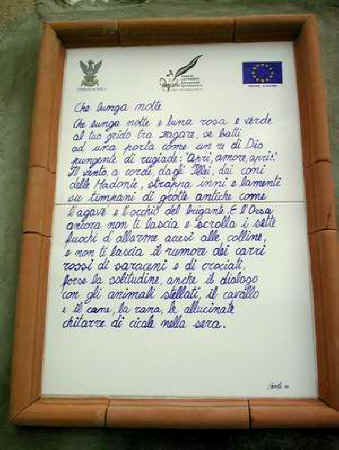 Che lunga notte
Che lunga notte e luna rosa e verde
al tuo grido tra zagare, se batti
ad una porta come un re di Dio
pungente di rugiade: "Apri, amore, apri!"
Il vento, a corde, dagli Iblei, dai coni
delle Madonie, strappa inni e lamenti
su timpani di grotte antiche come
l'agave e l'occhio del brigante. E l'Orsa
ancora non ti lascia e scrolla i sette
fuochi d'allarme accesi alle colline,
e non ti lascia il rumore dei carri
rossi di saraceni e di crociati,
forse la solitudine, anche il dialogo
con gli animali stellati, il cavallo
e il cane, la rana, le allucinate
chitarre di cicale nella sera.